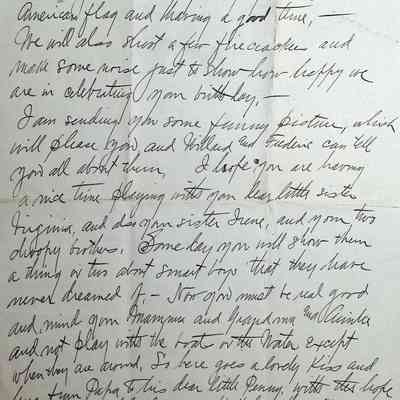 American flag and having a good time, —
We will also shoot a few firecrackers and
make some noise just to show how happy we
are in celebrating your birthday. —
I am sending you some funny pictures, which
will please you and Willard and Frederic can tell
you all about them, I hope you are having
a nice time playing with your dear little sister
Virginia, and also your sister Irene, and your two
brothers. Some day you will show them
a thing or two about smart boys that they have
never dreamed of. — Now you must be real good
and mind your Mamma and Grandma and Auntie
and not play with the boat or the Water except
when they are around, So here goes a lovely Kiss and
from Papa to his dear little, with the hope